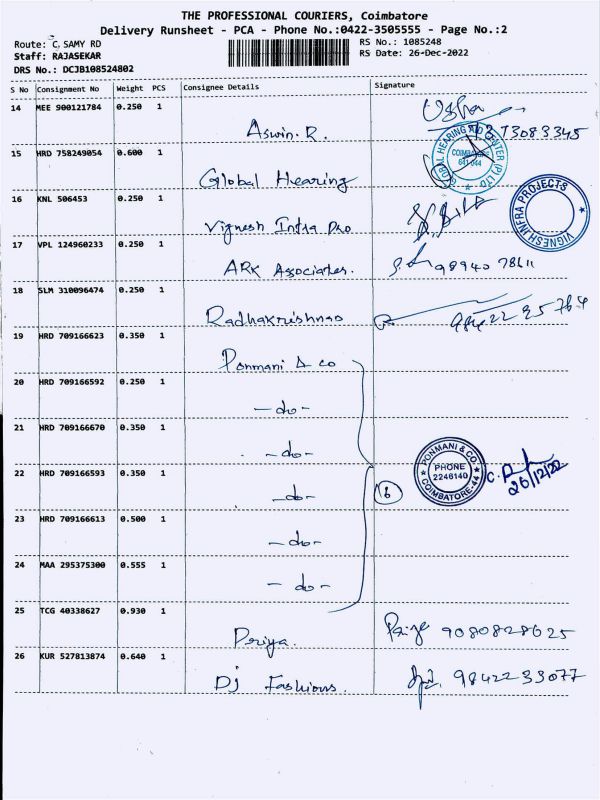 THE PROFESSIONAL COURIERS, Coimbatore
Delivery Runsheet - PCA - Phone No.:0422-3505555 - Page No.:2
Route: C, SAMY RD
Staff: RAJASEKAR
DRS No.: DCJB108524802
RS No.: 1085248
RS Date: 26-Dec-2022
S No Consignment No Weight PCS Consignee Details Signature
14 MEE 900121784 0.250 1
Aswin. R.
15 HRD 758249054 0.600 1
Global Hearing
GLOBAL HEARING AID CENTER (P) LTD
COIMBATORE
641 044
16 KNL 506453 0.250 1
Vignesh Infra Pro
VIGNESH INFRA PROJECTS
17 VPL 124960233 0.250 1
ARK Associates. 98940 78611
18 SLM 310096474 0.250 1
Radhakrishnao
19 HRD 709166623 0.350 1
Ponmani & co
20 HRD 709166592 0.250 1
-do-
21 HRD 709166670 0.350 1
-do-
22 HRD 709166593 0.350 1
-do- 6
PONMANI & CO.
PHONE
2246140
COIMBATORE-44
26/12/22
23 HRD 709166613 0.500 1
-do-
24 MAA 295375300 0.555 1
-do-
25 TCG 40338627 0.930 1
Periya. 9080828625
26 KUR 527813874 0.640 1
Dj Fashions. 9842233077